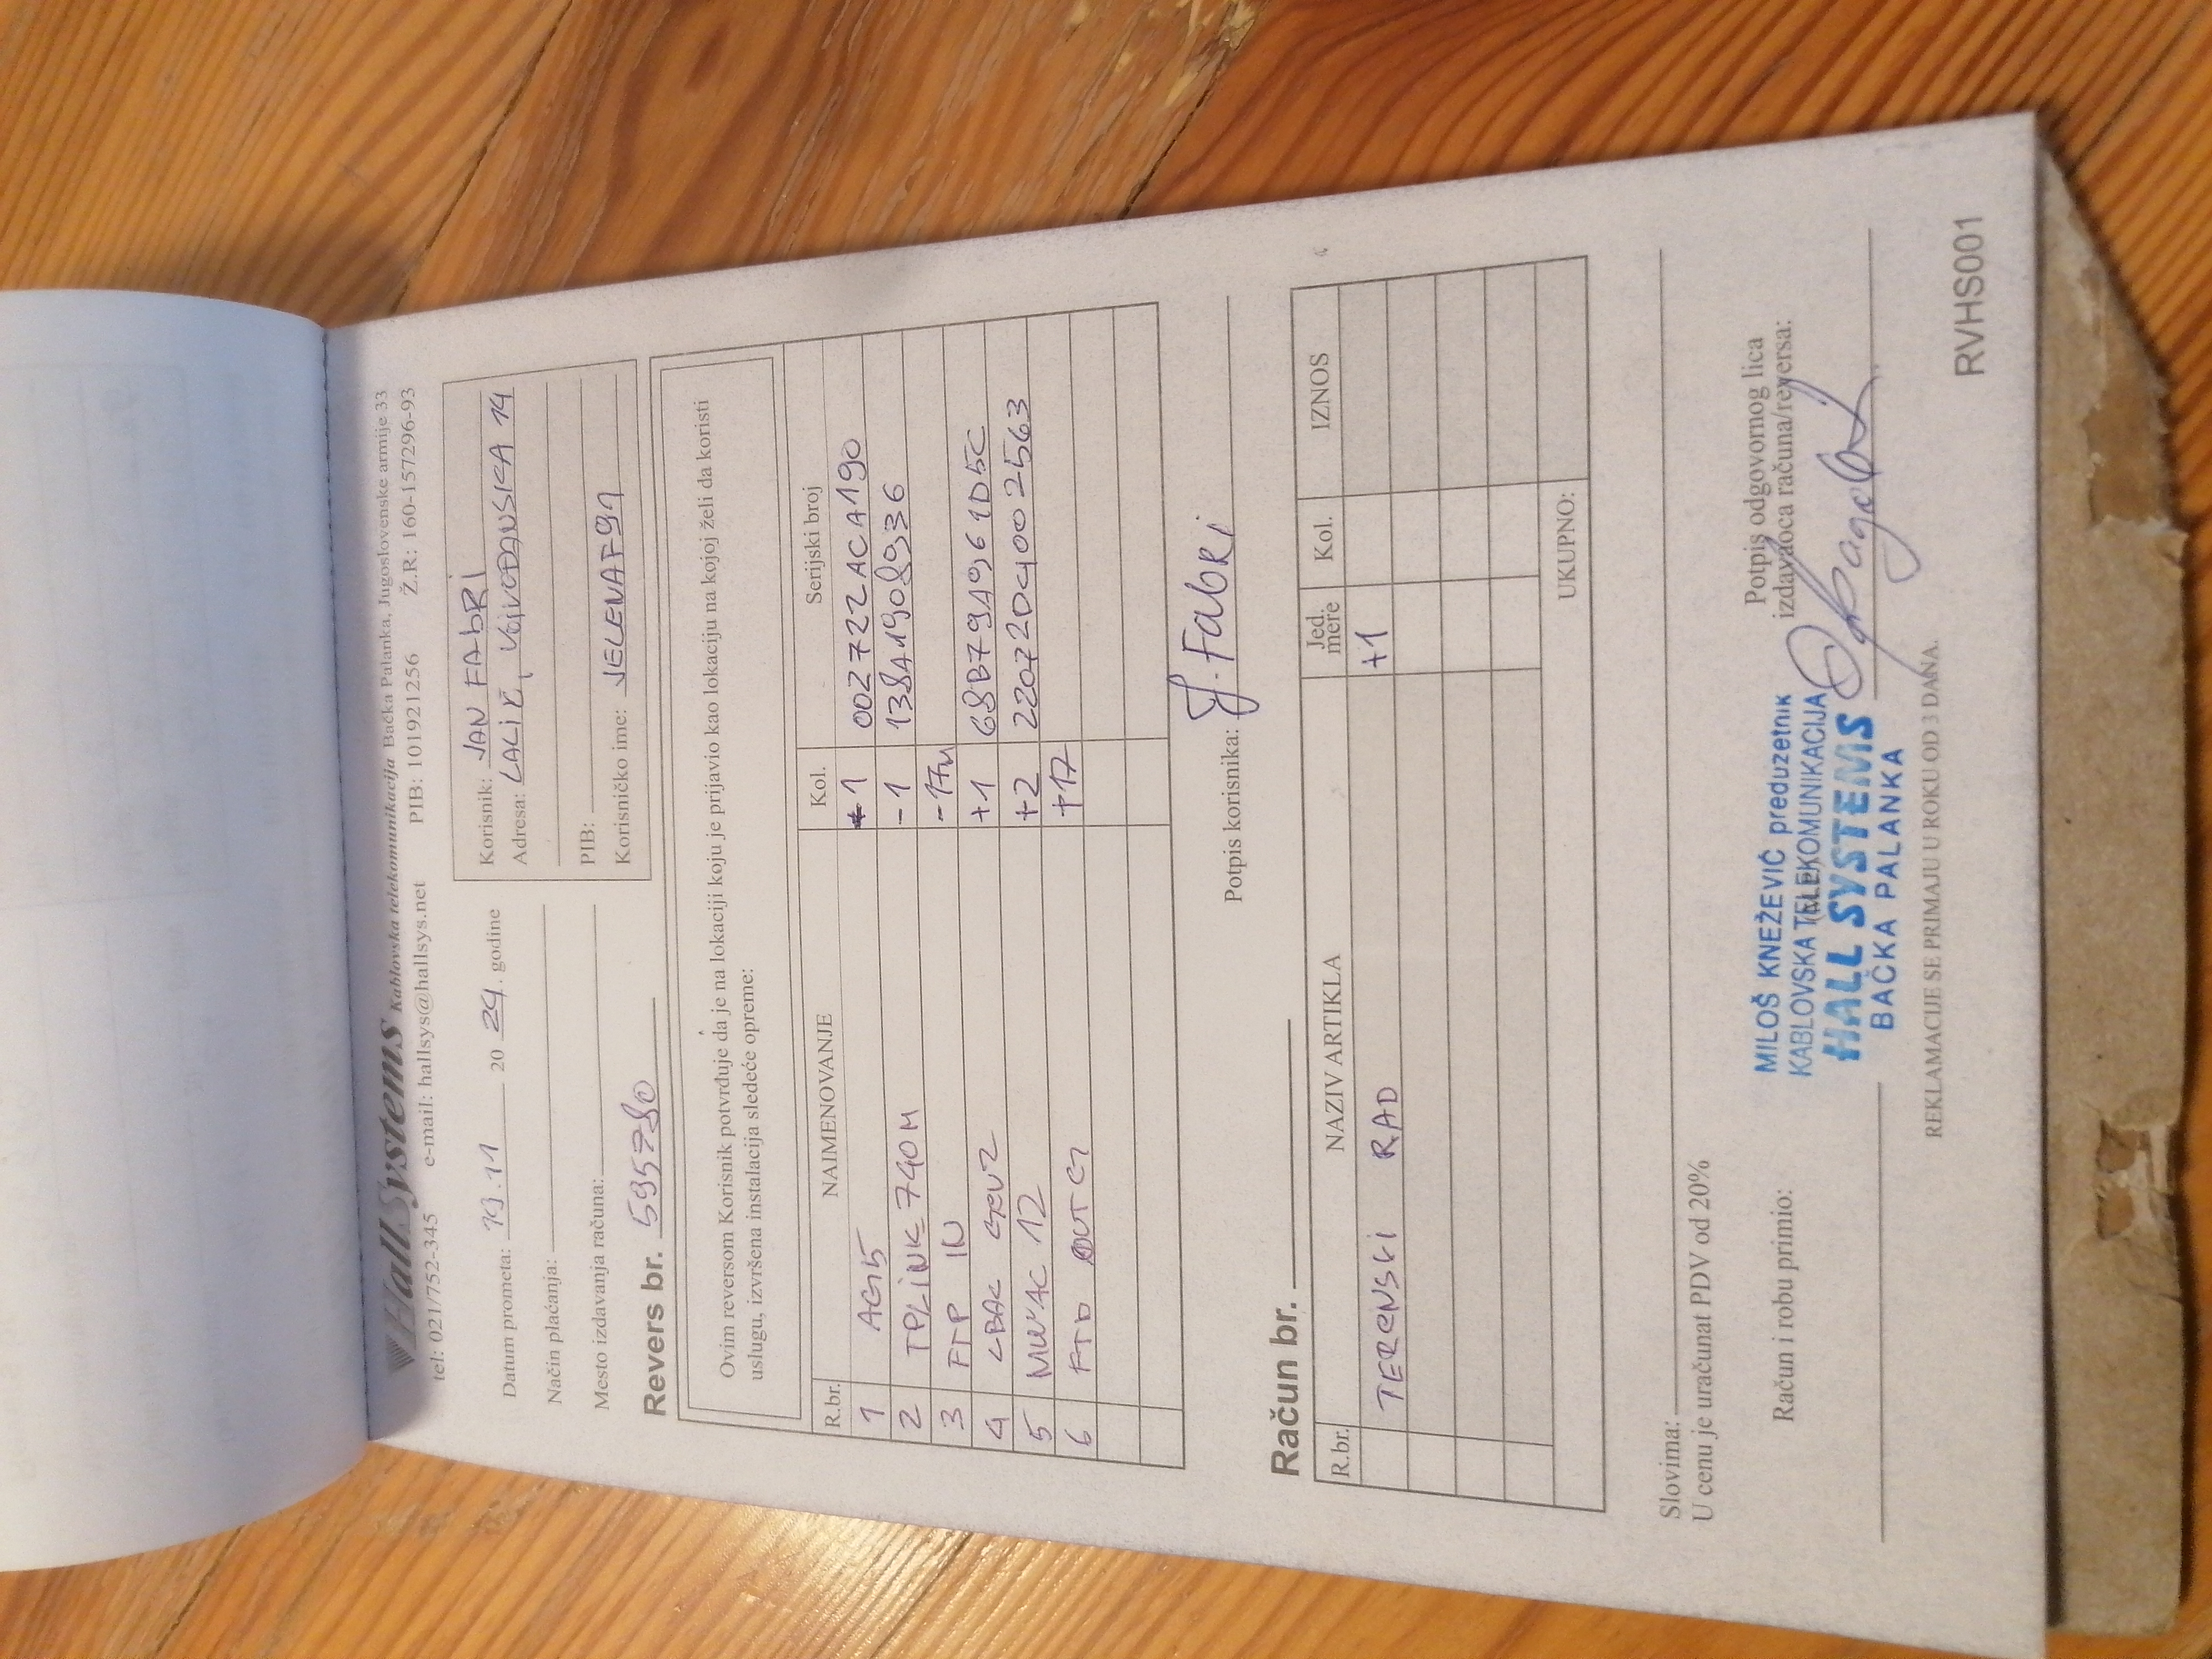 HallSystems Kablovska telekomunikacija Bačka Palanka, Jugoslovenske armije 33
tel: 021/752-345 e-mail: hallsys@hallsys.net PIB: 101921256 Ž.R: 160-157296-93
Datum prometa: 19.11 20 24. godine
Način plaćanja:
Mesto izdavanja računa:
Korisnik: JAN FAbRi
Adresa: LALiĆ, VOjVOĐANSKA 14
PIB:
Korisničko ime: JELENAF91
Revers br. 595780
Ovim reversom Korisnik potvrđuje da je na lokaciji koju je prijavio kao lokaciju na kojoj želi da koristi
uslugu, izvršena instalacija sledeće opreme:
R.br. NAIMENOVANJE Kol. Serijski broj
1 AG15 1 002722ACA190
2 TPLiNK 740N -1 138A19089936
3 FTP IN -17m
4 LBAC GEN2 +1 68B79A961D5C
5 12 +2 22072D4002563
6 OUT +17
Potpis korisnika: J. Fabri
Račun br.
R.br. NAZIV ARTIKLA Jed. mere Kol. IZNOS
TERENSKI RAD +1
UKUPNO:
Slovima:
U cenu je uračunat PDV od 20%
Račun i robu primio:
Potpis odgovornog lica
izdavaoca računa/reversa:
MILOŠ KNEŽEVIĆ preduzetnik
KABLOVSKA TELEKOMUNIKACIJA
HALL SYSTEMS
BAČKA PALANKA
REKLAMACIJE SE PRIMAJU U ROKU OD 3 DANA.
RVHS001